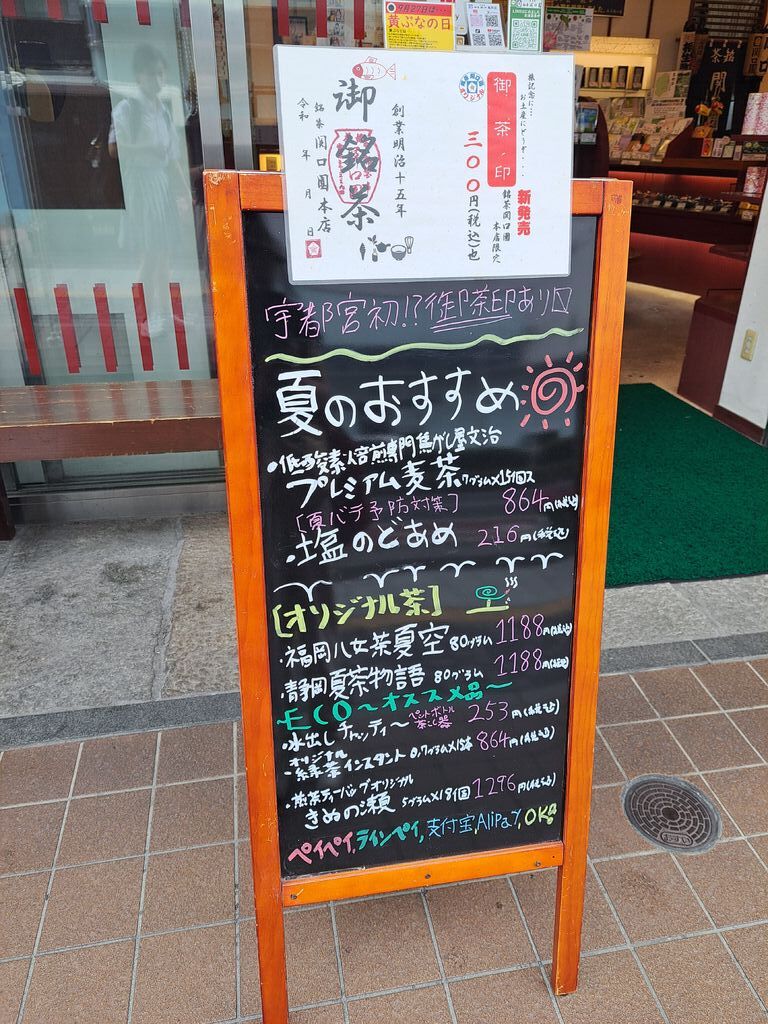 9月27日は…
黄ぶなの日
旅記念に…
お土産にどうぞ…
御茶印
新発売
銘茶関口園
本店限定
三〇〇円(税込)也
創業明治十五年
御銘茶
銘茶関口園本店
令和 年 月 日
宇都宮初!?御茶印あり〼
夏のおすすめ
プレミアム麦茶 7グラム×15個入
[夏バテ予防対策] 864円(税込)
・塩のどあめ 216円(税込)
[オリジナル茶]
・福岡八女茶夏空 80グラム 1188円(税込)
・静岡夏茶物語 80グラム 1188円(税込)
~ECO~オススメ品~
・水出しチャッティー ペットボトル茶こし器 253円(税込)
オリジナル
・緑茶インスタント 0.7グラム×15本 864円(税込)
・煎茶ティーバッグオリジナル
きぬの瀬 5グラム×18個 1296円(税込)
ペイペイ,ラインペイ,支付宝,AliPay,OK